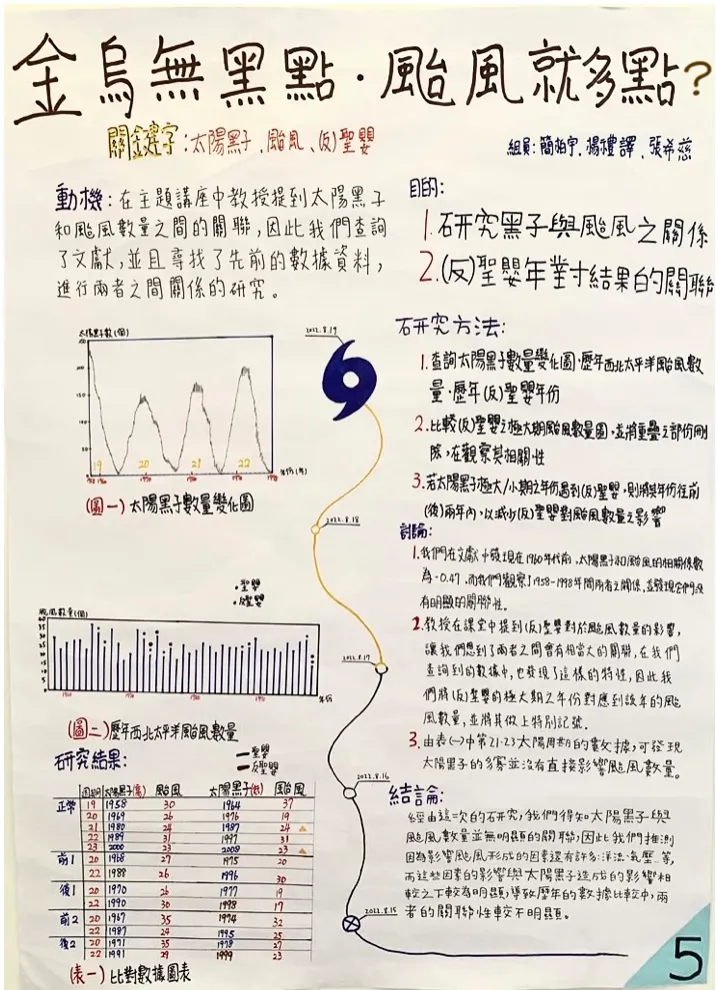 金烏無黑點・颱風就多點?
關鍵字:太陽黑子、颱風、(反)聖嬰
組員:簡柏宇、楊禮譯、張希慈
動機:在主題講座中教授提到太陽黑子
和颱風數量之間的關聯,因此我們查詢
了文獻,並且尋找了先前的數據資料,
進行兩者之間關係的研究。
目的:
1.研究黑子與颱風之關係
2.(反)聖嬰年對結果的關聯
太陽黑子數(個)
19 20 21 22
年份(年)
(圖一)太陽黑子數量變化圖
2022.8.19
2022.8.18
2022.8.17
2022.8.16
2022.8.15
研究方法:
1.查詢太陽黑子數量變化圖、歷年西北太平洋颱風數
量、歷年(反)聖嬰年份
2.比較(反)聖嬰之極大期颱風數量圖,並將重疊之部份刪
除,在觀察其相關性
3.若太陽黑子極大/小期之年份遇到(反)聖嬰,則將其年份往前
(後)兩年內,以減少(反)聖嬰對颱風數量之影響
討論:
1.我們在文獻中發現在1960年代前,太陽黑子和颱風的相關係數
為-0.47,而我們觀察了1958-1998年間兩者之關係,並發現它們沒
有明顯的關聯性。
2.教授在課堂中提到(反)聖嬰對於颱風數量的影響,
讓我們想到了兩者之間會有相當大的關聯,在我們
查詢到的數據中,也發現了這樣的特性,因此我
們將(反)聖嬰的極大期之年份對應到該年的颱
風數量,並將其做上特別記號。
3.由表(一)中第21-23太陽周期的數據,可發現
太陽黑子的多寡並沒有直接影響颱風數量。
颱風數量(個)
•聖嬰
•反聖嬰
年份
(圖二)歷年西北太平洋颱風數量
研究結果:
聖嬰
反聖嬰
周期 太陽黑子(高) 颱風 太陽黑子(低) 颱風
正常 19 1958 30 1964 37
20 1969 26 1976 19
21 1980 24 1987 24
22 1989 31 1997 31
23 2000 23 2008 23
前1 20 1968 27 1975 20
22 1988 26 1996 30
後1 20 1970 26 1977 19
22 1990 30 1998 17
前2 20 1967 35 1974 32
22 1987 24 1995 25
後2 20 1971 35 1978 27
22 1991 29 1999 23
(表一)比對數據圖表
結論:
經由這一次的研究,我們得知太陽黑子與
颱風數量並無明顯的關聯,因此我們推測
因為影響颱風形成的因素還有許多:洋流、氣壓...等,
而這些因素的影響與太陽黑子造成的影響相
較之下較為明顯,導致歷年的數據比較中,兩
者的關聯性較不明顯。
5